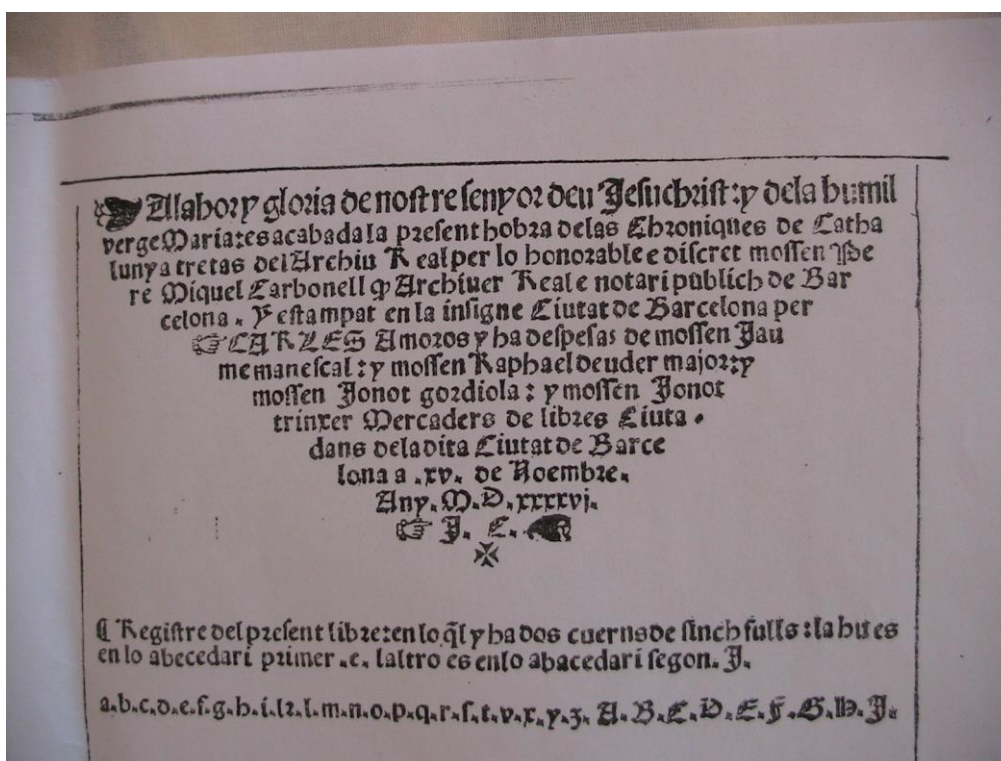 Alahor y gloria de nostre senyor deu Jesuchrist: y dela humil
verge Maria: es acabada la present hobra delas Chroniques de Catha
lunya tretas del Archiu Real per lo honorable e discret mossen Pe
re Miquel Carbonell q̃ Archiuer Real e notari publich de Bar
celona. Y estampat en la insigne Ciutat de Barcelona per
☞ CARLES Amoros y ha despesas de mossen Jau
me manescal: y mossen Raphael deuder major: y
mossen Jonot gordiola: y mossen Jonot
trinxer Mercaders de libres Ciuta.
dans dela dita Ciutat de Barce
lona a .xv. de Noembre.
Any. M.D.xxxxvj.
☞ J. C.
¶ Registre del present libre: en lo q̃l y ha dos cuerns de sinch fulls: la hu es
en lo abecedari primer .e. laltro es enlo abacedari segon. J.
a.b.c.d.e.f.g.h.i.k.l.m.n.o.p.q.r.s.t.v.x.y.z. A.B.C.D.E.F.G.H.J.